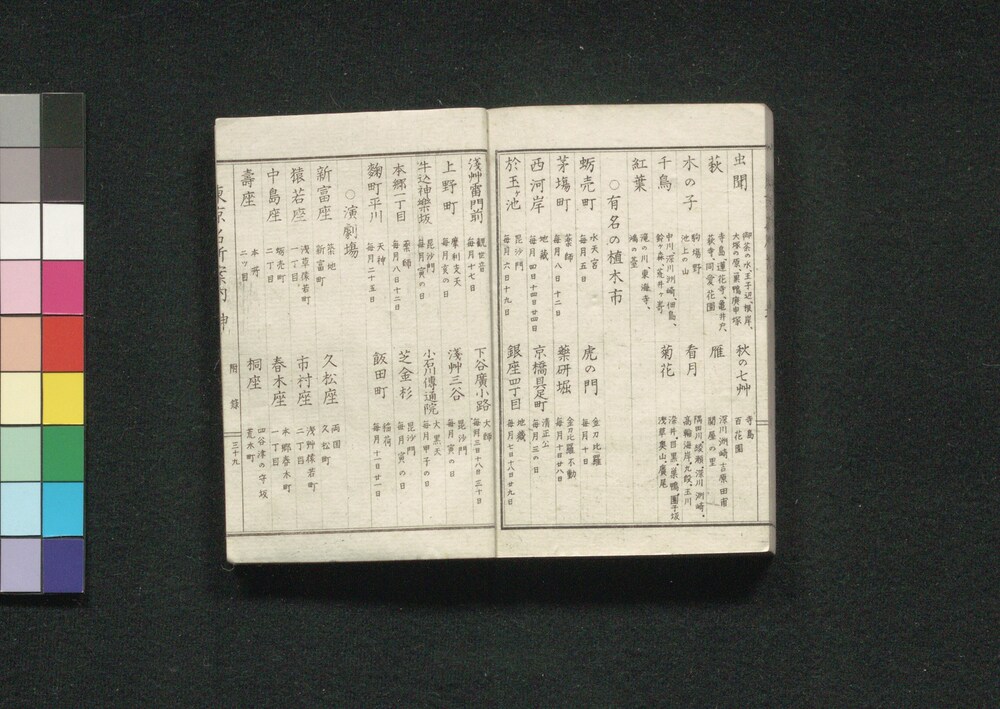 虫聞
御茶の水、王子辺、根岸、
大塚の原、巣鴨庚申塚
秋の七艸
寺島
百花園
萩
寺島蓮花寺、亀井戸
萩寺、同愛花園
雁
深川洲崎、吉原田甫
関屋の里
木の子
駒場野
池上の山
看月
隅田川、綾瀬、深川洲崎、
高輪海岸、九段、玉川
千鳥
中川、深川洲崎、佃島、
鈴ヶ森
菊花
染井、目黒、巣鴨、團子坂
浅草奥山、廣尾
紅葉
滝の川、東海寺、
○有名の植木市
蛎売町
水天宮
毎月五日
虎の門
金刀比羅
毎月十日
茅塲町
薬師
毎月八日 十二日
藥研堀
金刀比羅不動
毎月十日廿八日
西河岸
地藏
毎月四日十四日廿四日
京橋具足町
清正公
毎月三の日
於玉ヶ池
毘沙門
毎月六日十九日
銀座四丁目
地藏
毎月七日十八日廿九日
淺艸雷門前
観世音
毎月十七日
下谷廣小路
大師
毎月三日十八日三十日
上野町
摩利支天
毎月亥の日
淺艸三谷
毘沙門
毎月寅の日
牛込神樂坂
毘沙門
毎月寅の日
小石川傳通院
大黒天
毎月甲子の日
本郷一丁目
薬師
毎月八日十二日
芝金杉
毘沙門
毎月寅の日
麹町平川
天神
毎月二十五日
飯田町
稲荷
毎月十一日廿一日
○演劇塲
新富座
築地
新富町
久松座
両国
久松町
猿若座
浅草猿若町
一丁目
市村座
浅野猿若町
二丁目
中島座
蛎売町
二丁目
春木座
本郷春木町
一丁目
壽座
本所
二ッ目
桐座
四谷津の守坂
荒木町
東京名所案内
附録
三十九